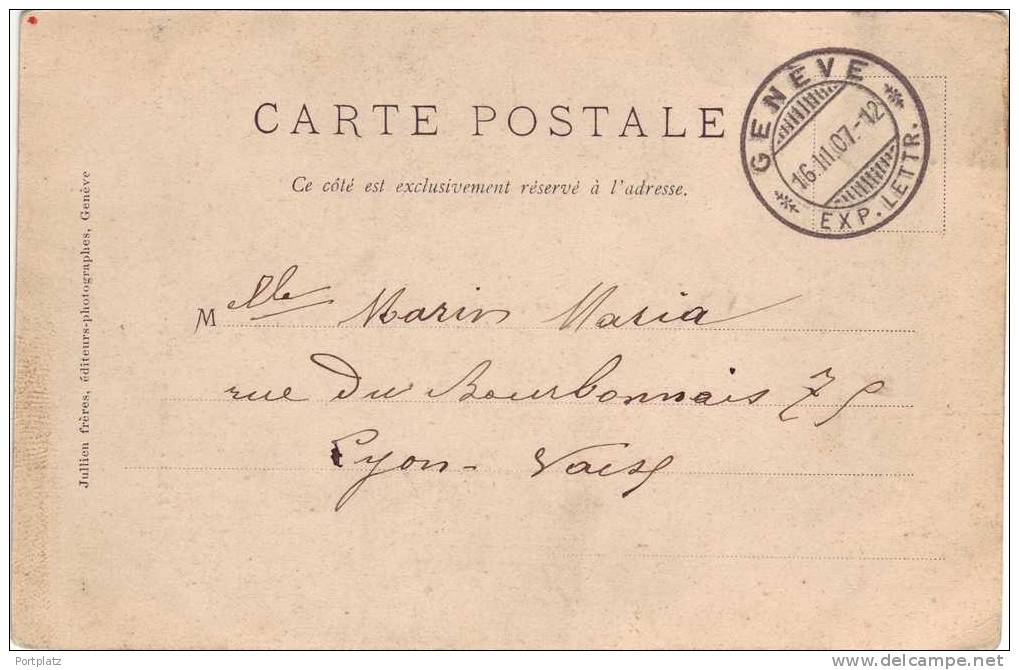 CARTE POSTALE
Ce côté est exclusivement réservé à l'adresse.
GENÈVE
16.III.07.-12
EXP. LETTR.
Jullien frères, éditeurs-photographes, Genève
Melle Marin Maria
rue du Bourbonnais 75
Lyon - Vaise
Portplatz
www.delcampe.net